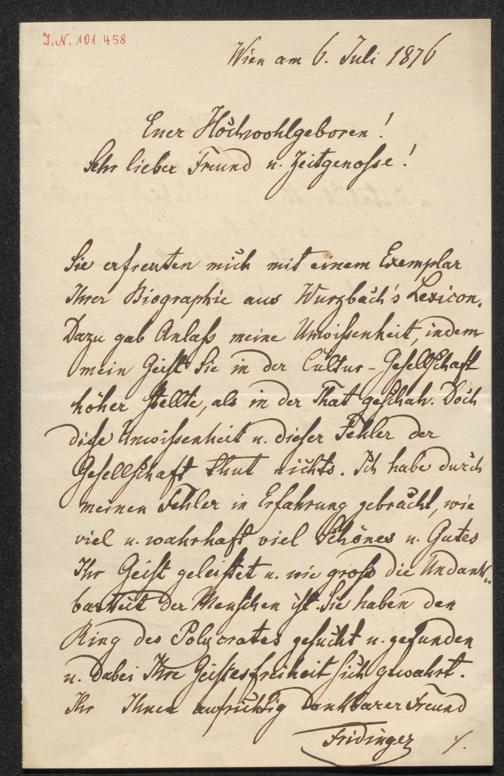 I.N. 101.458
Wien am 6. Juli 1876
Euer Hochwohlgeboren!
Sehr lieber Freund u. Zeitgenosse!
Sie erfreuten mich mit einem Exemplar
Ihrer Biographie aus Wurzbach's Lexicon.
Dazu gab Anlaß meine Unwissenheit, indem
mein Geist Sie in der Cultur-Gesellschaft
höher stellte, als in der That geschah. Doch
diese Unwissenheit u. dieser Fehler der
Gesellschaft thut nichts. Ich habe durch
meinen Fehler in Erfahrung gebracht, wie
viel u. wahrhaft viel Schönes u. Gutes
Ihr Geist geleistet u. wie groß die Undank-
barkeit der Menschen ist. Sie haben den
Ring des Polycrates gesucht u. gefunden
u. dabei Ihre Geistesfreiheit sich gewahrt.
Ihr Ihnen aufrichtig dankbarer Freund
Fridinger